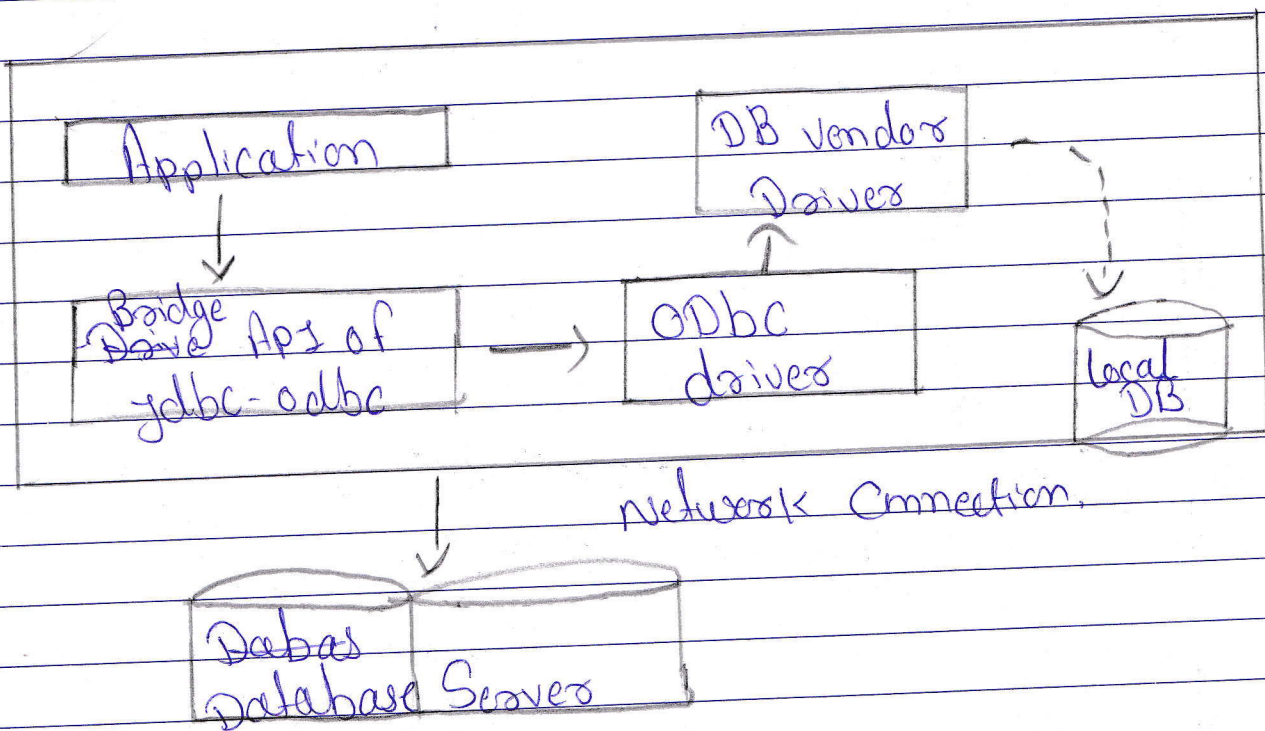 Application
DB vendor
Driver
Bridge
Drive API of
jdbc-odbc
ODbC
driver
local
DB
Network Connection.
Dabas
Database Server